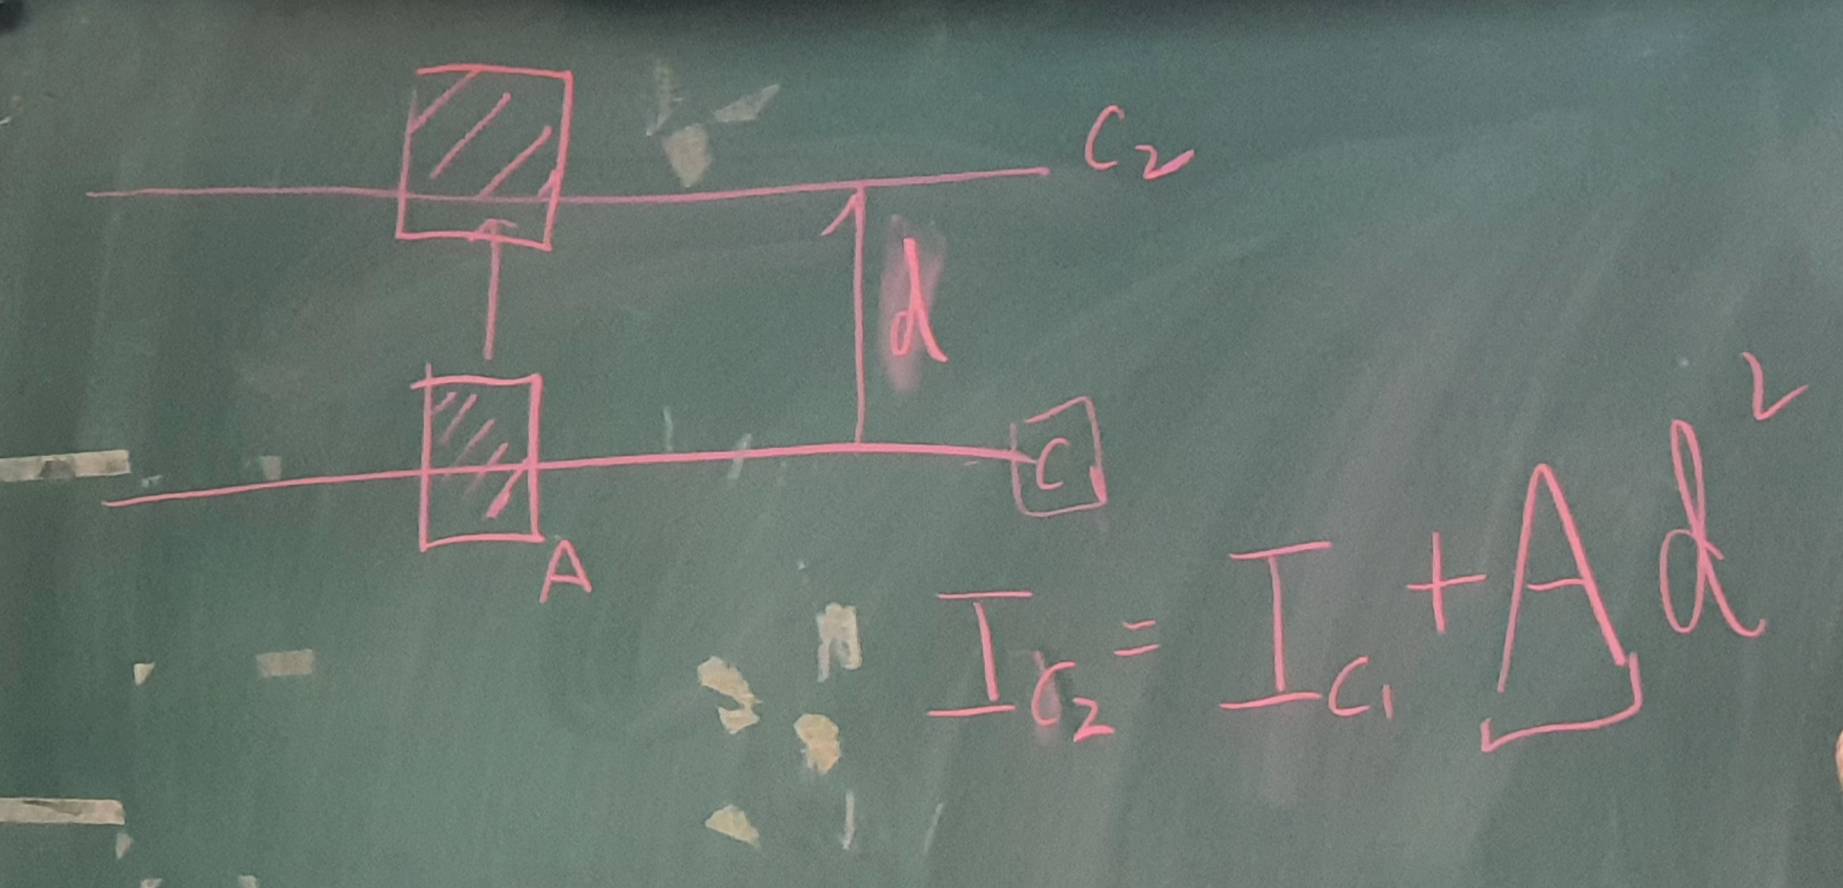 C₂
d
C
A
I_C₂ = I_C₁ + A d²